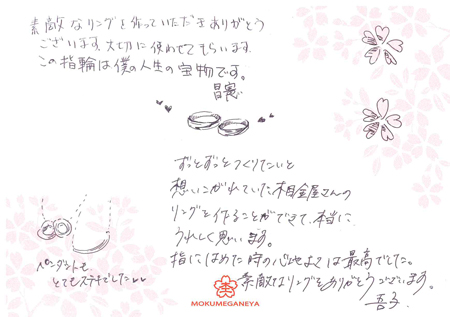 素敵なリングを作っていただきありがとう
ございます。大切に使わせてもらいます。
この指輪は僕の人生の宝物です。
ずっとずっとつくりたいと
想いこがれていた杢目金屋さんの
リングを作ることができて、本当に
うれしく思います。
指にはめた時の心地よさは最高でした。
素敵なリングをありがとうございます。
ペンダントも
とてもステキでした
MOKUMEGANEYA